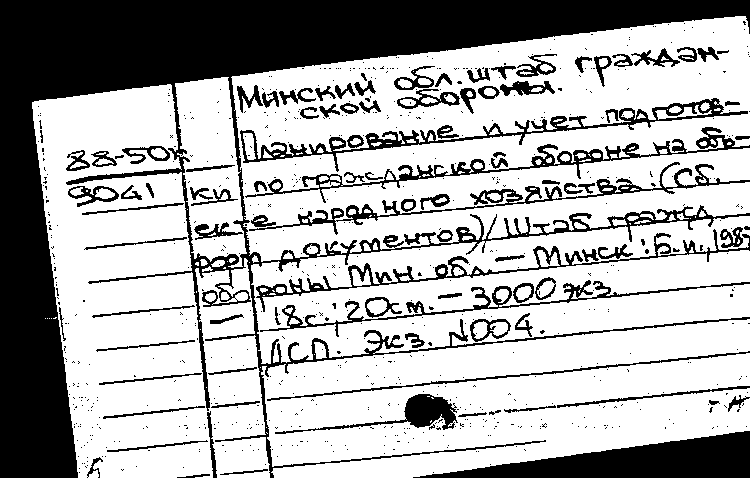 Минский обл. штаб граждан-
ской обороны.
88-50к
9041
Планирование и учет подготов-
ки по гражданской обороне на объ-
екте народного хозяйства: (Сб.
форм документов)/ Штаб гражд.
обороны Мин. обл. — Минск: Б.и., 1987
18с.; 20см. — 3000 экз.
ДСП. Экз. N004.